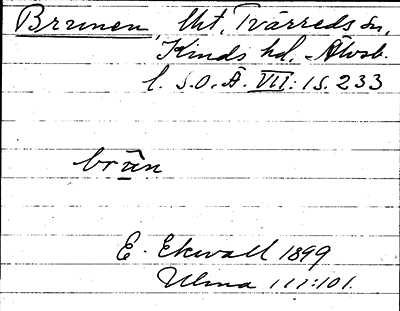 Brunen, Uht, Tvärreds sn,
Kinds hd, Älvsb.
l. S.O.Ä. VII:1 S. 233
brän
E. Ekwall 1899
Ulma 111:101.